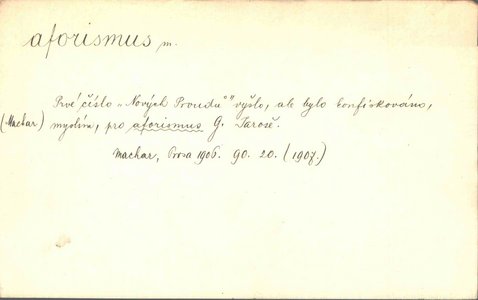 aforismus m.
Prvé číslo „Nových Proudů“ vyšlo, ale bylo konfiskováno,
(Machar) myslím, pro aforismus G. Jaroše.
Machar, Prosa 1906. 90. 20. (1907.)